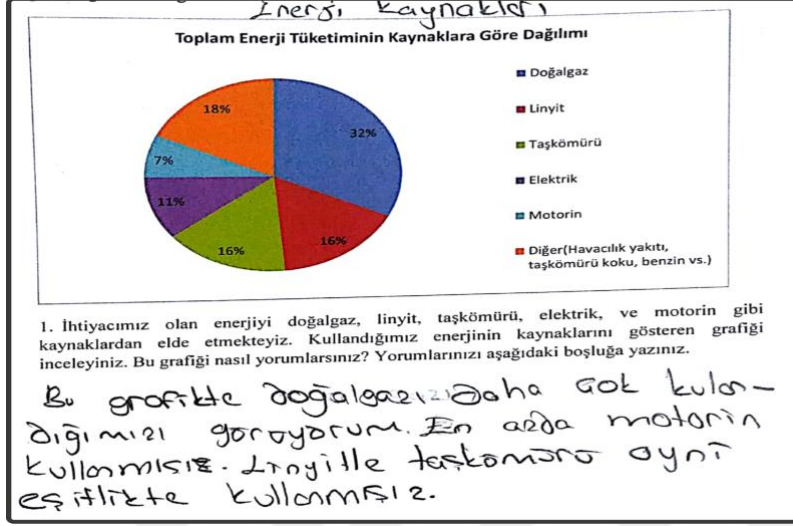 Enerji Kaynakları
Toplam Enerji Tüketiminin Kaynaklara Göre Dağılımı
18%
32%
7%
11%
16%
16%
Doğalgaz
Linyit
Taşkömürü
Elektrik
Motorin
Diğer(Havacılık yakıtı,
taşkömürü koku, benzin vs.)
1. İhtiyacımız olan enerjiyi doğalgaz, linyit, taşkömürü, elektrik, ve motorin gibi
kaynaklardan elde etmekteyiz. Kullandığımız enerjinin kaynaklarını gösteren grafiği
inceleyiniz. Bu grafiği nasıl yorumlarsınız? Yorumlarınızı aşağıdaki boşluğa yazınız.
Bu grafikte daha çok kulan-
dığımızı görüyorum. En azda motorin
kullanmışız. Linyitle taşkömürü aynı
eşitlikte kullanmışız.